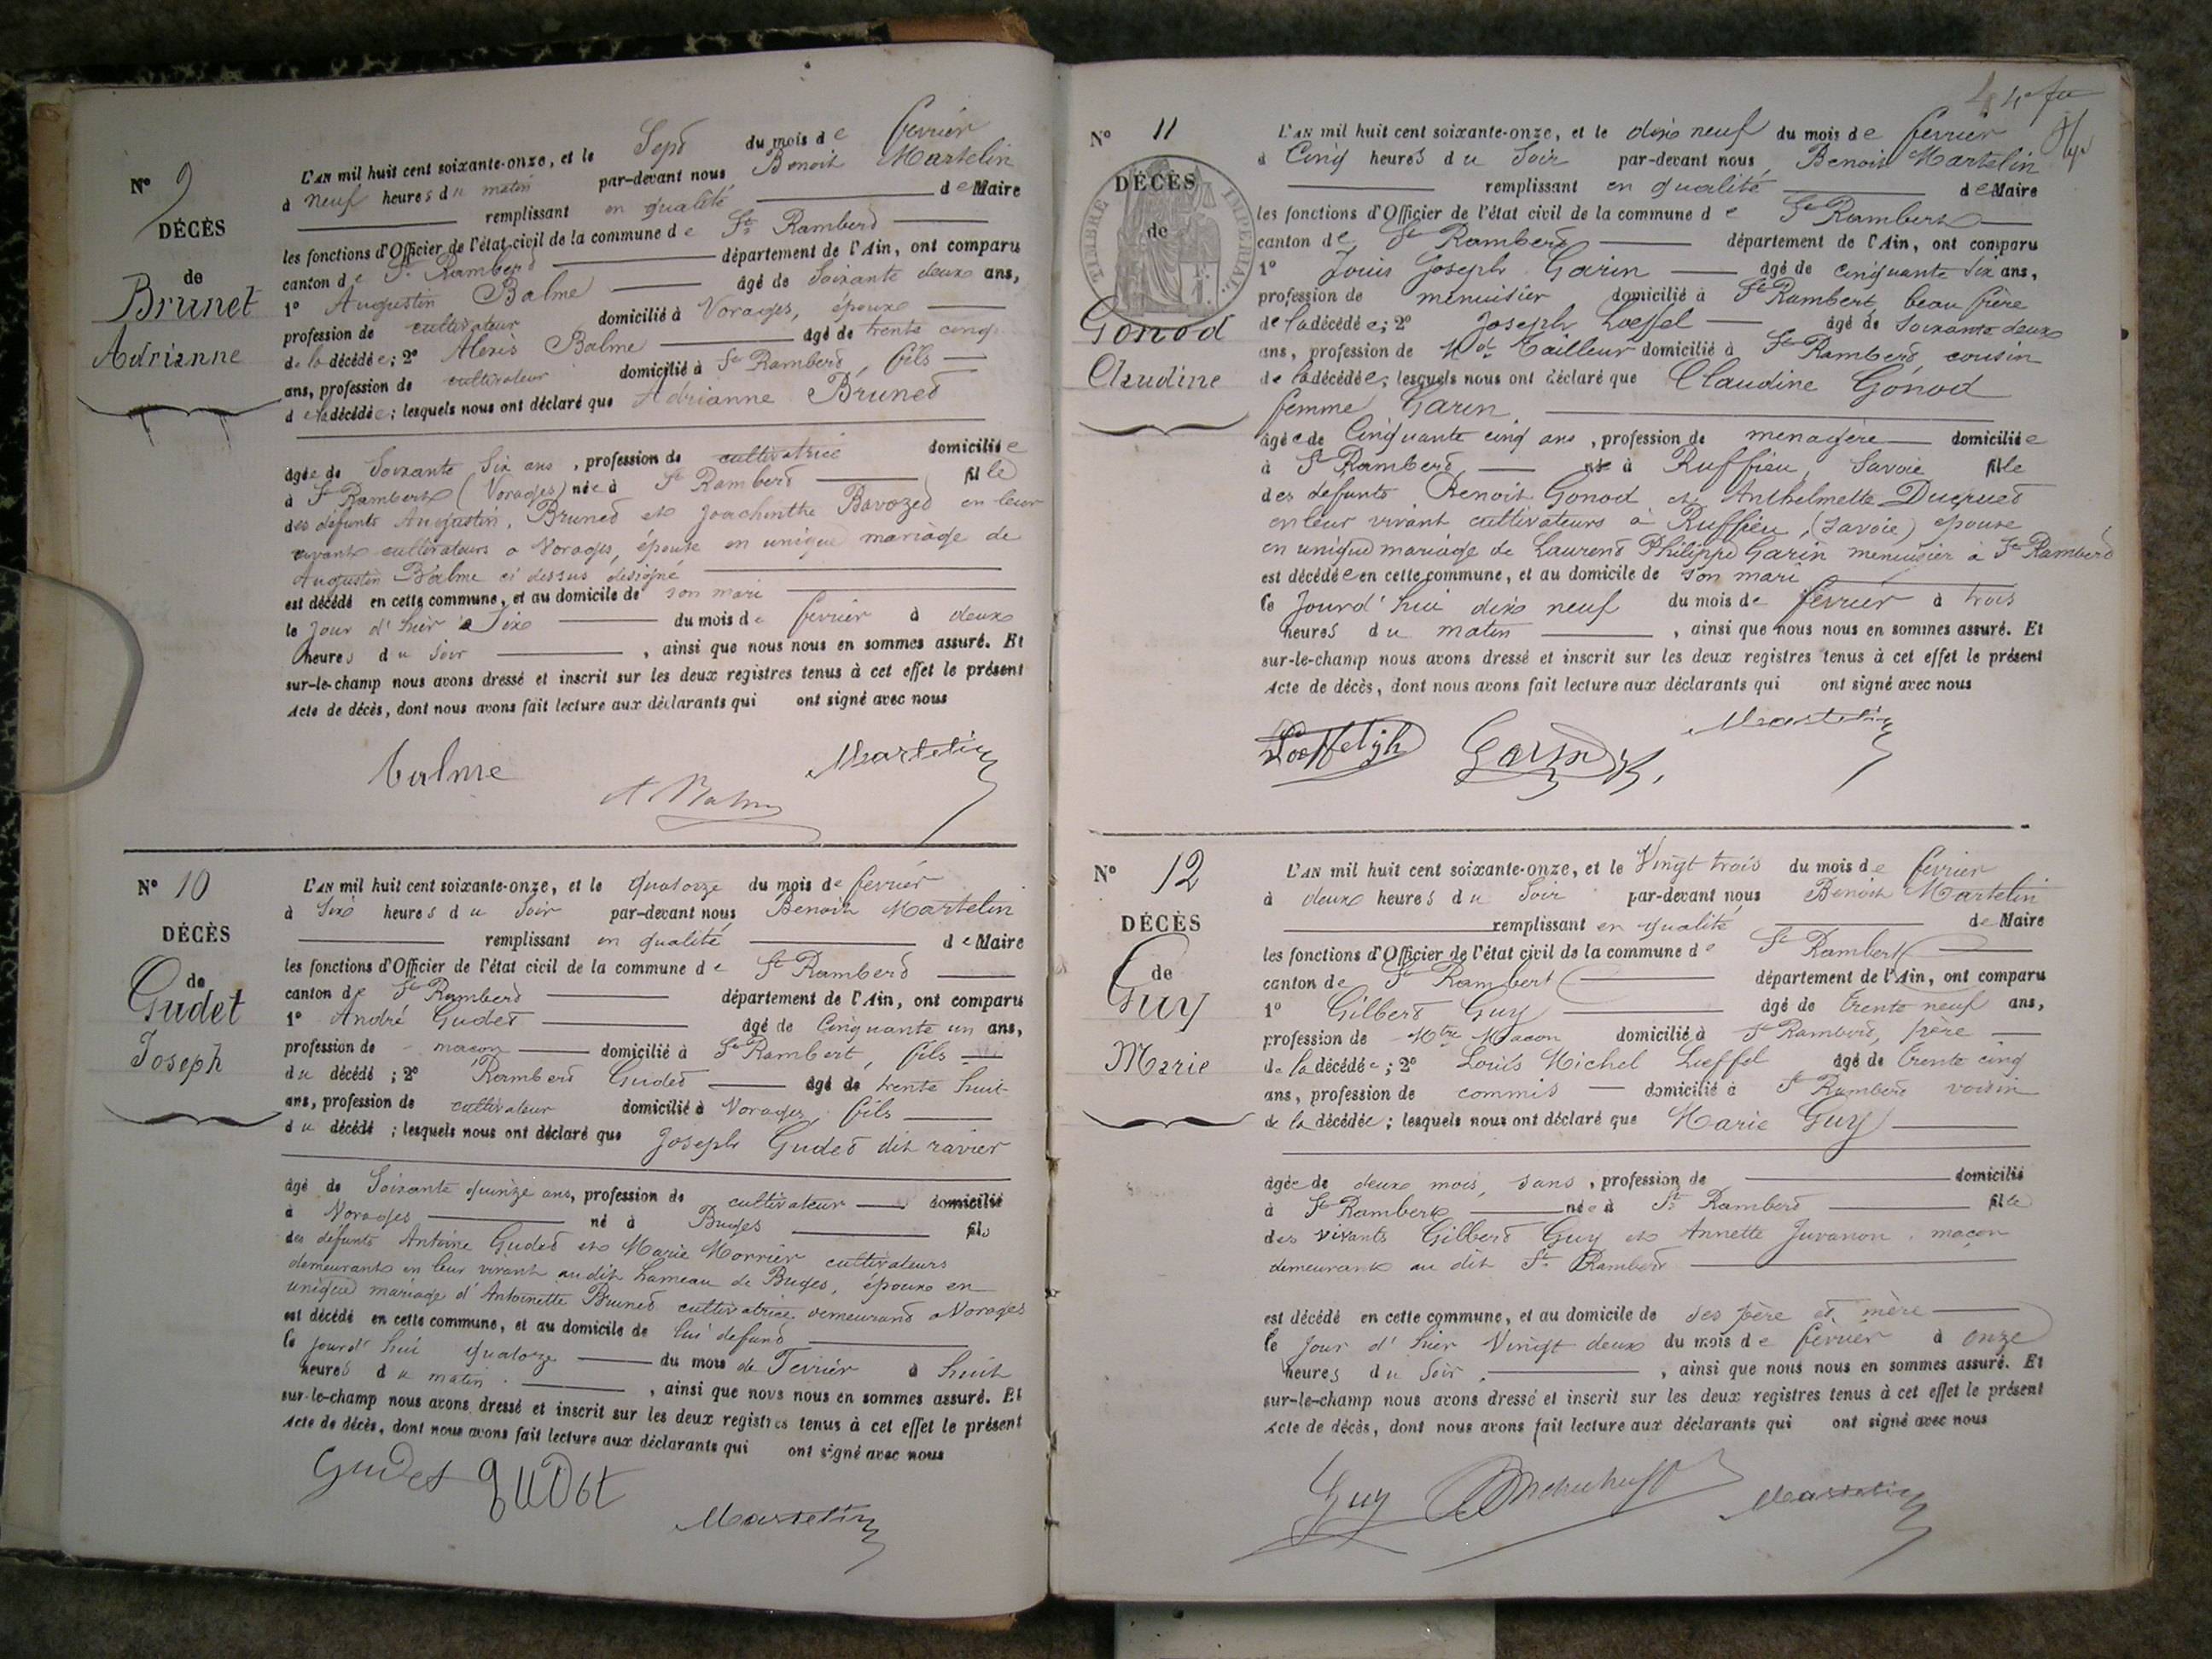 N° 9
DÉCÈS
de
Brunet
Adrianne
L'AN mil huit cent soixante-onze, et le Sept du mois de février
à neuf heures du matin par-devant nous Benoit Martelin
remplissant en qualité de Maire
les fonctions d'Officier de l'état civil de la commune de St Rambert
canton de St Rambert département de l'Ain, ont comparu
1° Augustin Balme âgé de Soixante deux ans,
profession de cultivateur domicilié à Vorages, époux
de la décédée; 2° Alexis Balme âgé de trente cinq
ans, profession de cultivateur domicilié à St Rambert, fils
de la décédée; lesquels nous ont déclaré que Adrianne Brunet
âgée de Soixante Six ans, profession de cultivatrice domiciliée
à St Rambert (Vorages) née à St Rambert fille
des défunts Augustin Brunet et Joachinthe Bavozed en leur
vivant cultivateurs a Vorages, épouse en unique mariage de
Augustin Balme ci dessus désigné
est décédé en cette commune, et au domicile de son mari
le Jour d'hier Six du mois de février à deux
heures du Soir, ainsi que nous nous en sommes assuré. Et
sur-le-champ nous avons dressé et inscrit sur les deux registres tenus à cet effet le présent
Acte de décès, dont nous avons fait lecture aux déclarants qui ont signé avec nous
balme Martelin
N° 10
DÉCÈS
de
Gudet
Joseph
L'AN mil huit cent soixante-onze, et le quatorze du mois de février
à Six heures du Soir par-devant nous Benoit Martelin
remplissant en qualité de Maire
les fonctions d'Officier de l'état civil de la commune de St Rambert
canton de St Rambert département de l'Ain, ont comparu
1° André Gudet âgé de Cinquante un ans,
profession de macon domicilié à St Rambert, fils
du décédé; 2° Rambert Gudet âgé de trente huit
ans, profession de cultivateur domicilié à Vorages, fils
du décédé; lesquels nous ont déclaré que Joseph Gudet dit ravier
âgé de Soixante quinze ans, profession de cultivateur domicilié
à Vorages né à Buges fils
des défunts Antoine Gudet et Marie Morrier cultivateurs
demeurant en leur vivant audit hameau de Buges, époux en
unique mariage d'Antoinette Brunet cultivatrice demeurant a Vorages
est décédé en cette commune, et au domicile de lui defunt
le jourd'hui quatorze du mois de Fevrier à huit
heures du matin, ainsi que nous nous en sommes assuré. Et
sur-le-champ nous avons dressé et inscrit sur les deux registres tenus à cet effet le présent
Acte de décès, dont nous avons fait lecture aux déclarants qui ont signé avec nous
Gudet gudet
Martelin
N° 11
TIMBRE IMPÉRIAL
DÉCÈS
de
Gonod
Claudine
L'AN mil huit cent soixante-onze, et le dix neuf du mois de février
à Cinq heures du Soir par-devant nous, Benoit Martelin
remplissant en qualité de Maire
les fonctions d'Officier de l'état civil de la commune de St Rambert
canton de St Rambert département de l'Ain, ont comparu
1° Louis Joseph Garin âgé de cinquante Six ans,
profession de menuisier domicilié à St Rambert, beau frère
de la décédée; 2° Joseph Loeffel âgé de soixante deux
ans, profession de Md Tailleur domicilié à St Rambert, cousin
de la décédée; lesquels nous ont déclaré que Claudine Gonod
femme Garin
âgée de Cinquante cinq ans, profession de menagère domiciliée
à St Rambert, née à Ruffieu, Savoie fille
des defunts Benoit Gonod et Anthelmette Ducruet
en leur vivant cultivateurs à Ruffieu, (Savoie) epouse
en unique mariage de Laurent Philippe Garin menuisier à St Rambert
est décédée en cette commune, et au domicile de son mari
le Jourd'hui dix neuf du mois de février à trois
heures du matin, ainsi que nous nous en sommes assuré. Et
sur-le-champ nous avons dressé et inscrit sur les deux registres tenus à cet effet le présent
Acte de décès, dont nous avons fait lecture aux déclarants qui ont signé avec nous
Garin Martelin
N° 12
DÉCÈS
de
Guy
Marie
L'AN mil huit cent soixante-onze, et le Vingt trois du mois de février
à deux heures du Soir par-devant nous Benoit Martelin
remplissant en qualité de Maire
les fonctions d'Officier de l'état civil de la commune de St Rambert
canton de St Rambert département de l'Ain, ont comparu
1° Gilbert Guy âgé de trente neuf ans,
profession de Mtre Macon domicilié à St Rambert, père
de la décédée; 2° Louis Michel Lieffel âgé de trente cinq
ans, profession de commis domicilié à St Rambert voisin
de la décédée; lesquels nous ont déclaré que Marie Guy
âgée de deux mois, sans, profession de domicilié
à St Rambert née à St Rambert fille
des vivants Gilbert Guy et Annette Juvanon, maçon
demeurant au dit St Rambert
est décédé en cette commune, et au domicile de ses père et mère
le jour d'hier Vingt deux du mois de février à onze
heures du Soir, ainsi que nous nous en sommes assuré. Et
sur-le-champ nous avons dressé et inscrit sur les deux registres tenus à cet effet le présent
Acte de décès, dont nous avons fait lecture aux déclarants qui ont signé avec nous
Guy Martelin